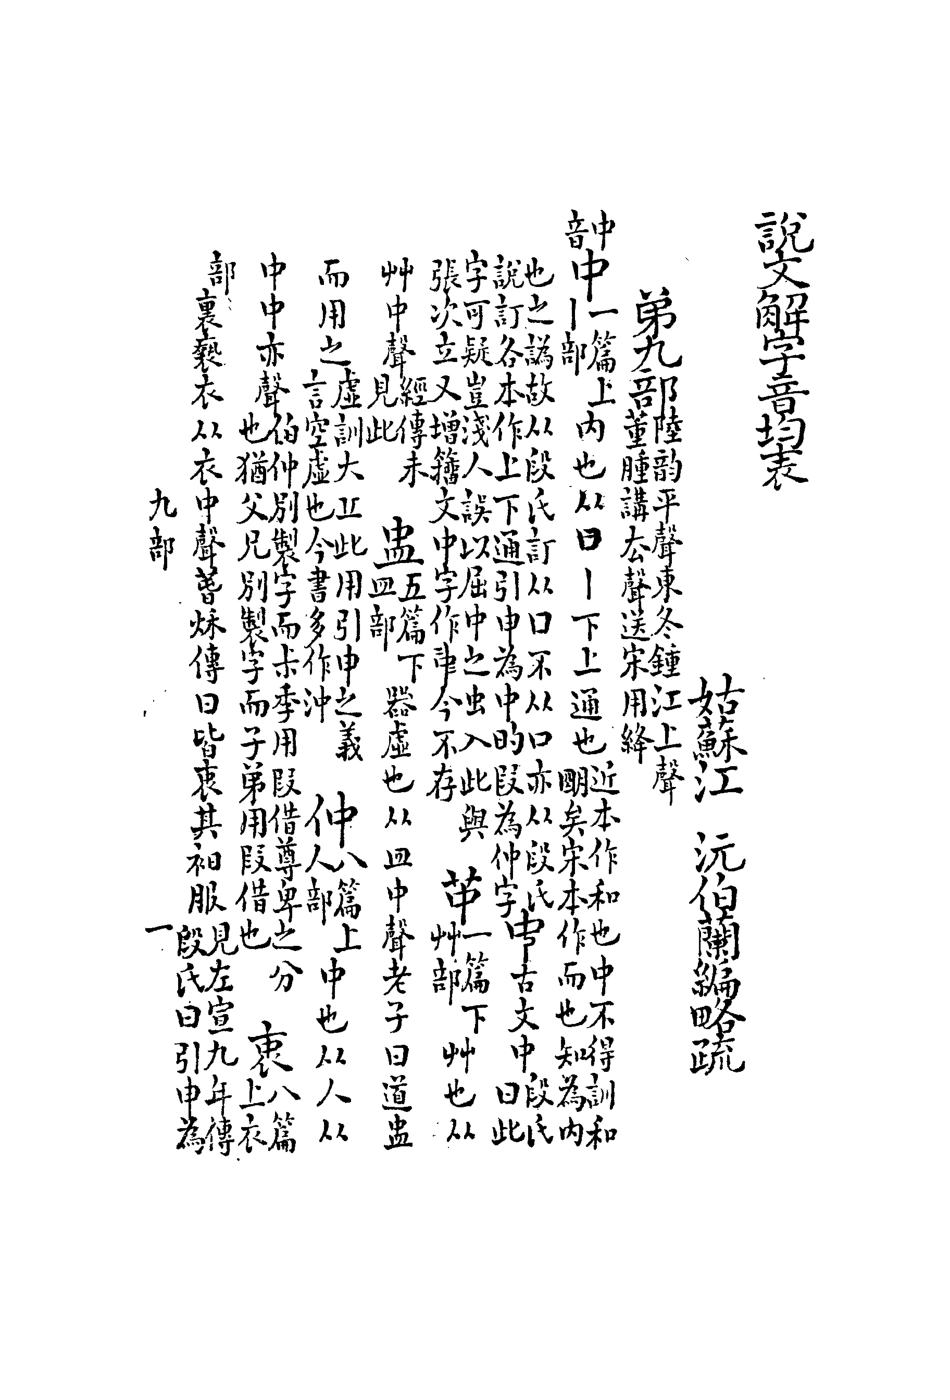 說文解字音均表
姑蘇江 沅伯蘭編略疏
弟九部陸韵平聲東冬鍾江上聲
董腫講厺聲送宋用絳
中音
中一篇上
丨部
內也从口丨下上通也
近本作和也中不得訓和
朙矣宋本作而也知為內
也之譌故从段氏訂从口不从囗亦从段氏
說訂各本作上下通引申為中的叚為仲字
𠁧古文中
段氏
曰此
字可疑豈淺人誤以屈中之虫入此與
張次立又增籒文中字作𠁩今不存
䒚一篇下
艸部
艸也从
艸中聲
經傳未
見此
盅五篇下
皿部
器虛也从皿中聲老子曰道盅
而用之
虛訓大丠此用引申之義
言空虛也今書多作沖
仲八篇上
人部
中也从人从
中中亦聲
伯仲別製字而尗季用叚借尊卑之分
也猶父兄別製字而子弟用叚借也
衷八篇
上衣
部
裏褻衣从衣中聲萅秌傳曰皆衷其衵服
見左宣九年傳
段氏曰引申為
九部
一